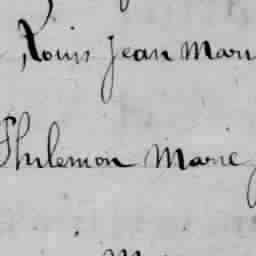 Louis Jean Mari
Philemon Marie